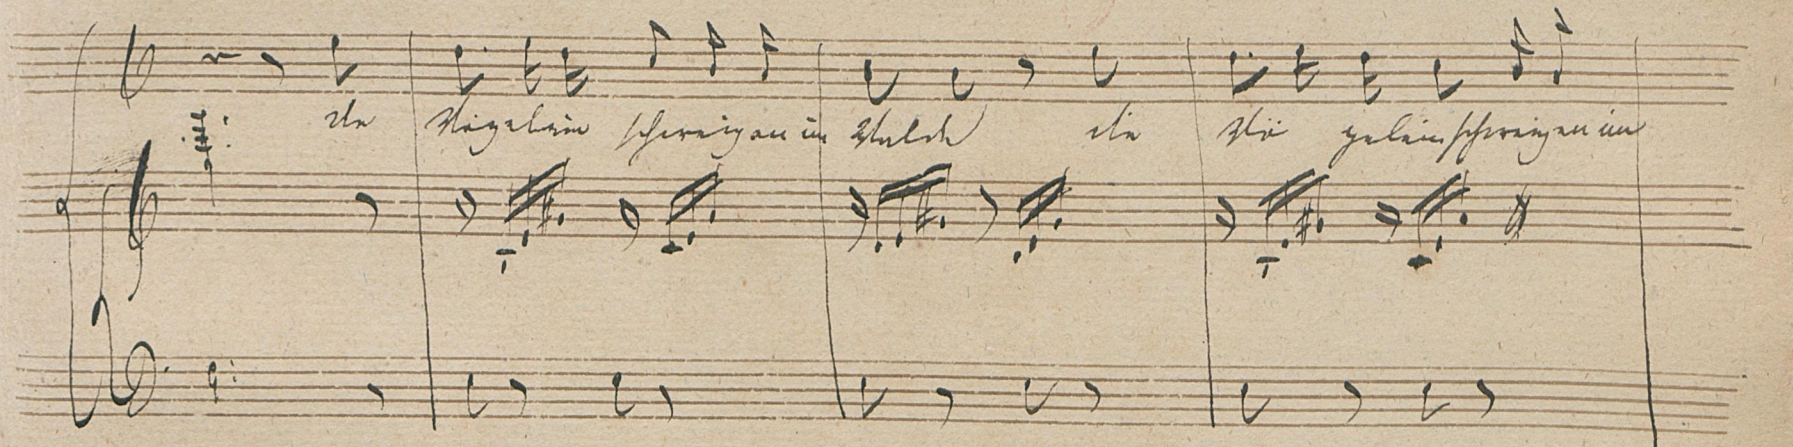 die Vögelein schweigen im Walde die Vö gelein schweigen im